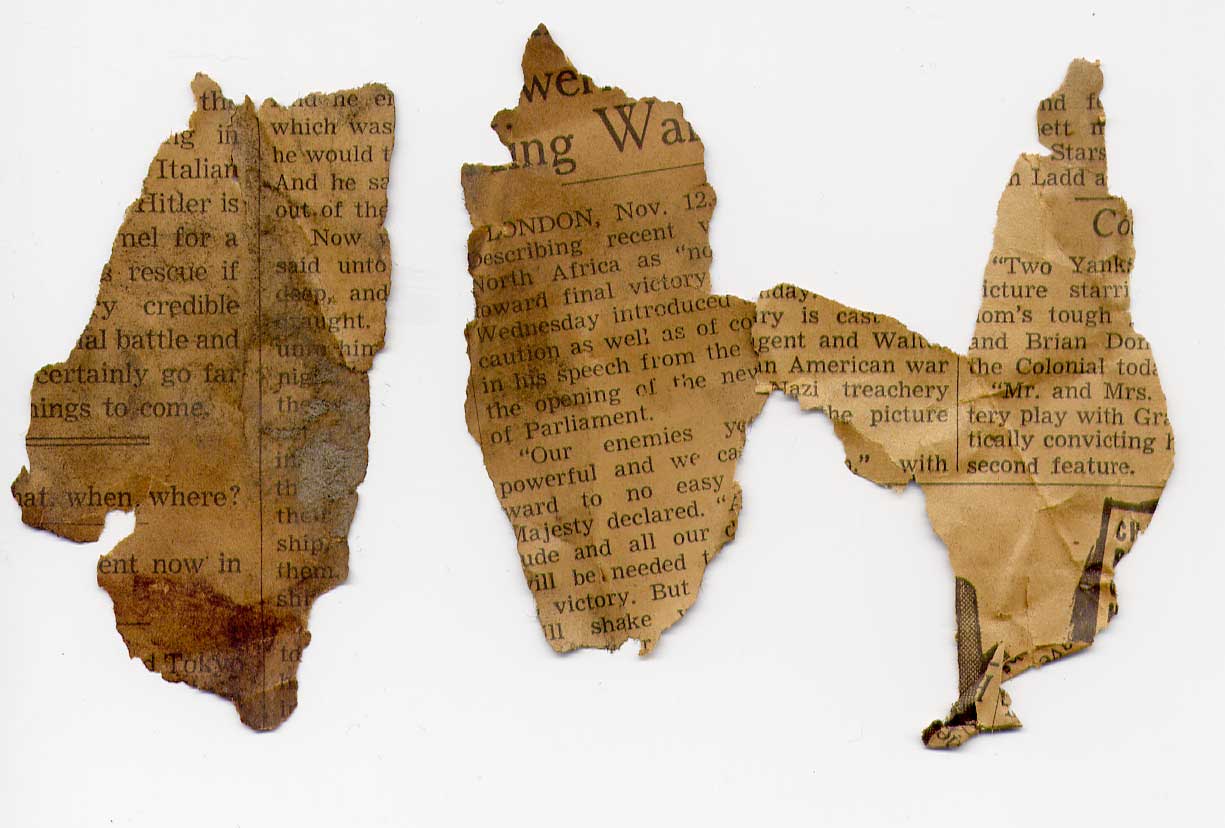 the
ng in
Italian
Hitler is
nel for a
s rescue if
y credible
al battle and
certainly go far
ings to come.
at, when, where?
ent now in
d Tokyo
And he
which was
he would t
And he sa
out of the
Now
said unto
deep, and
draught.
nig
the
in
th
their
ship,
them.
shi
to
wer
ing War
LONDON, Nov. 12.
Describing recent V
North Africa as "no
toward final victory
Wednesday introduced
caution as well as of co
in his speech from the
the opening of the new
of Parliament.
"Our enemies ye
powerful and we ca
ward to no easy
Majesty declared. "A
ude and all our
ill be needed t
victory. But
ll shake
day.
ry is cast
gent and Walt
an American war
Nazi treachery
he picture
." with
nd f
ett m
Stars
n Ladd a
Co
"Two Yanks
icture starri
om's tough
and Brian Don
the Colonial toda
"Mr. and Mrs.
tery play with Gr
tically convicting h
second feature.